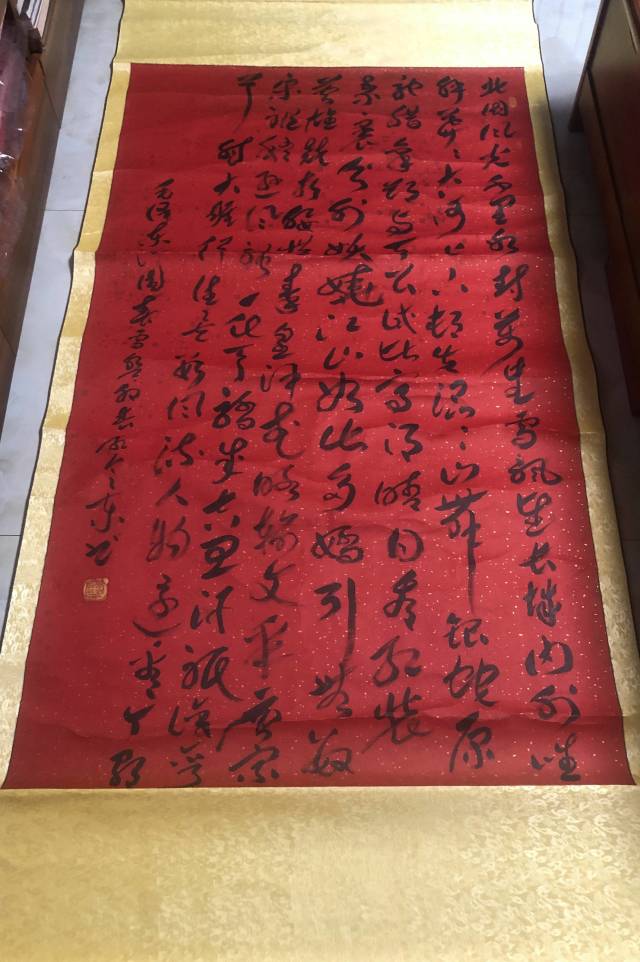 北国风光千里冰封万里雪飘望长城内外惟
余莽莽大河上下顿失滔滔山舞银蛇原
驰蜡象欲与天公试比高须晴日看红装
素裹分外妖娆江山如此多娇引无数
英雄竞折腰惜秦皇汉武略输文采唐宗
宋祖稍逊风骚一代天骄成吉思汗只识弯
弓射大雕俱往矣数风流人物还看今朝
毛泽东沁园春雪 书